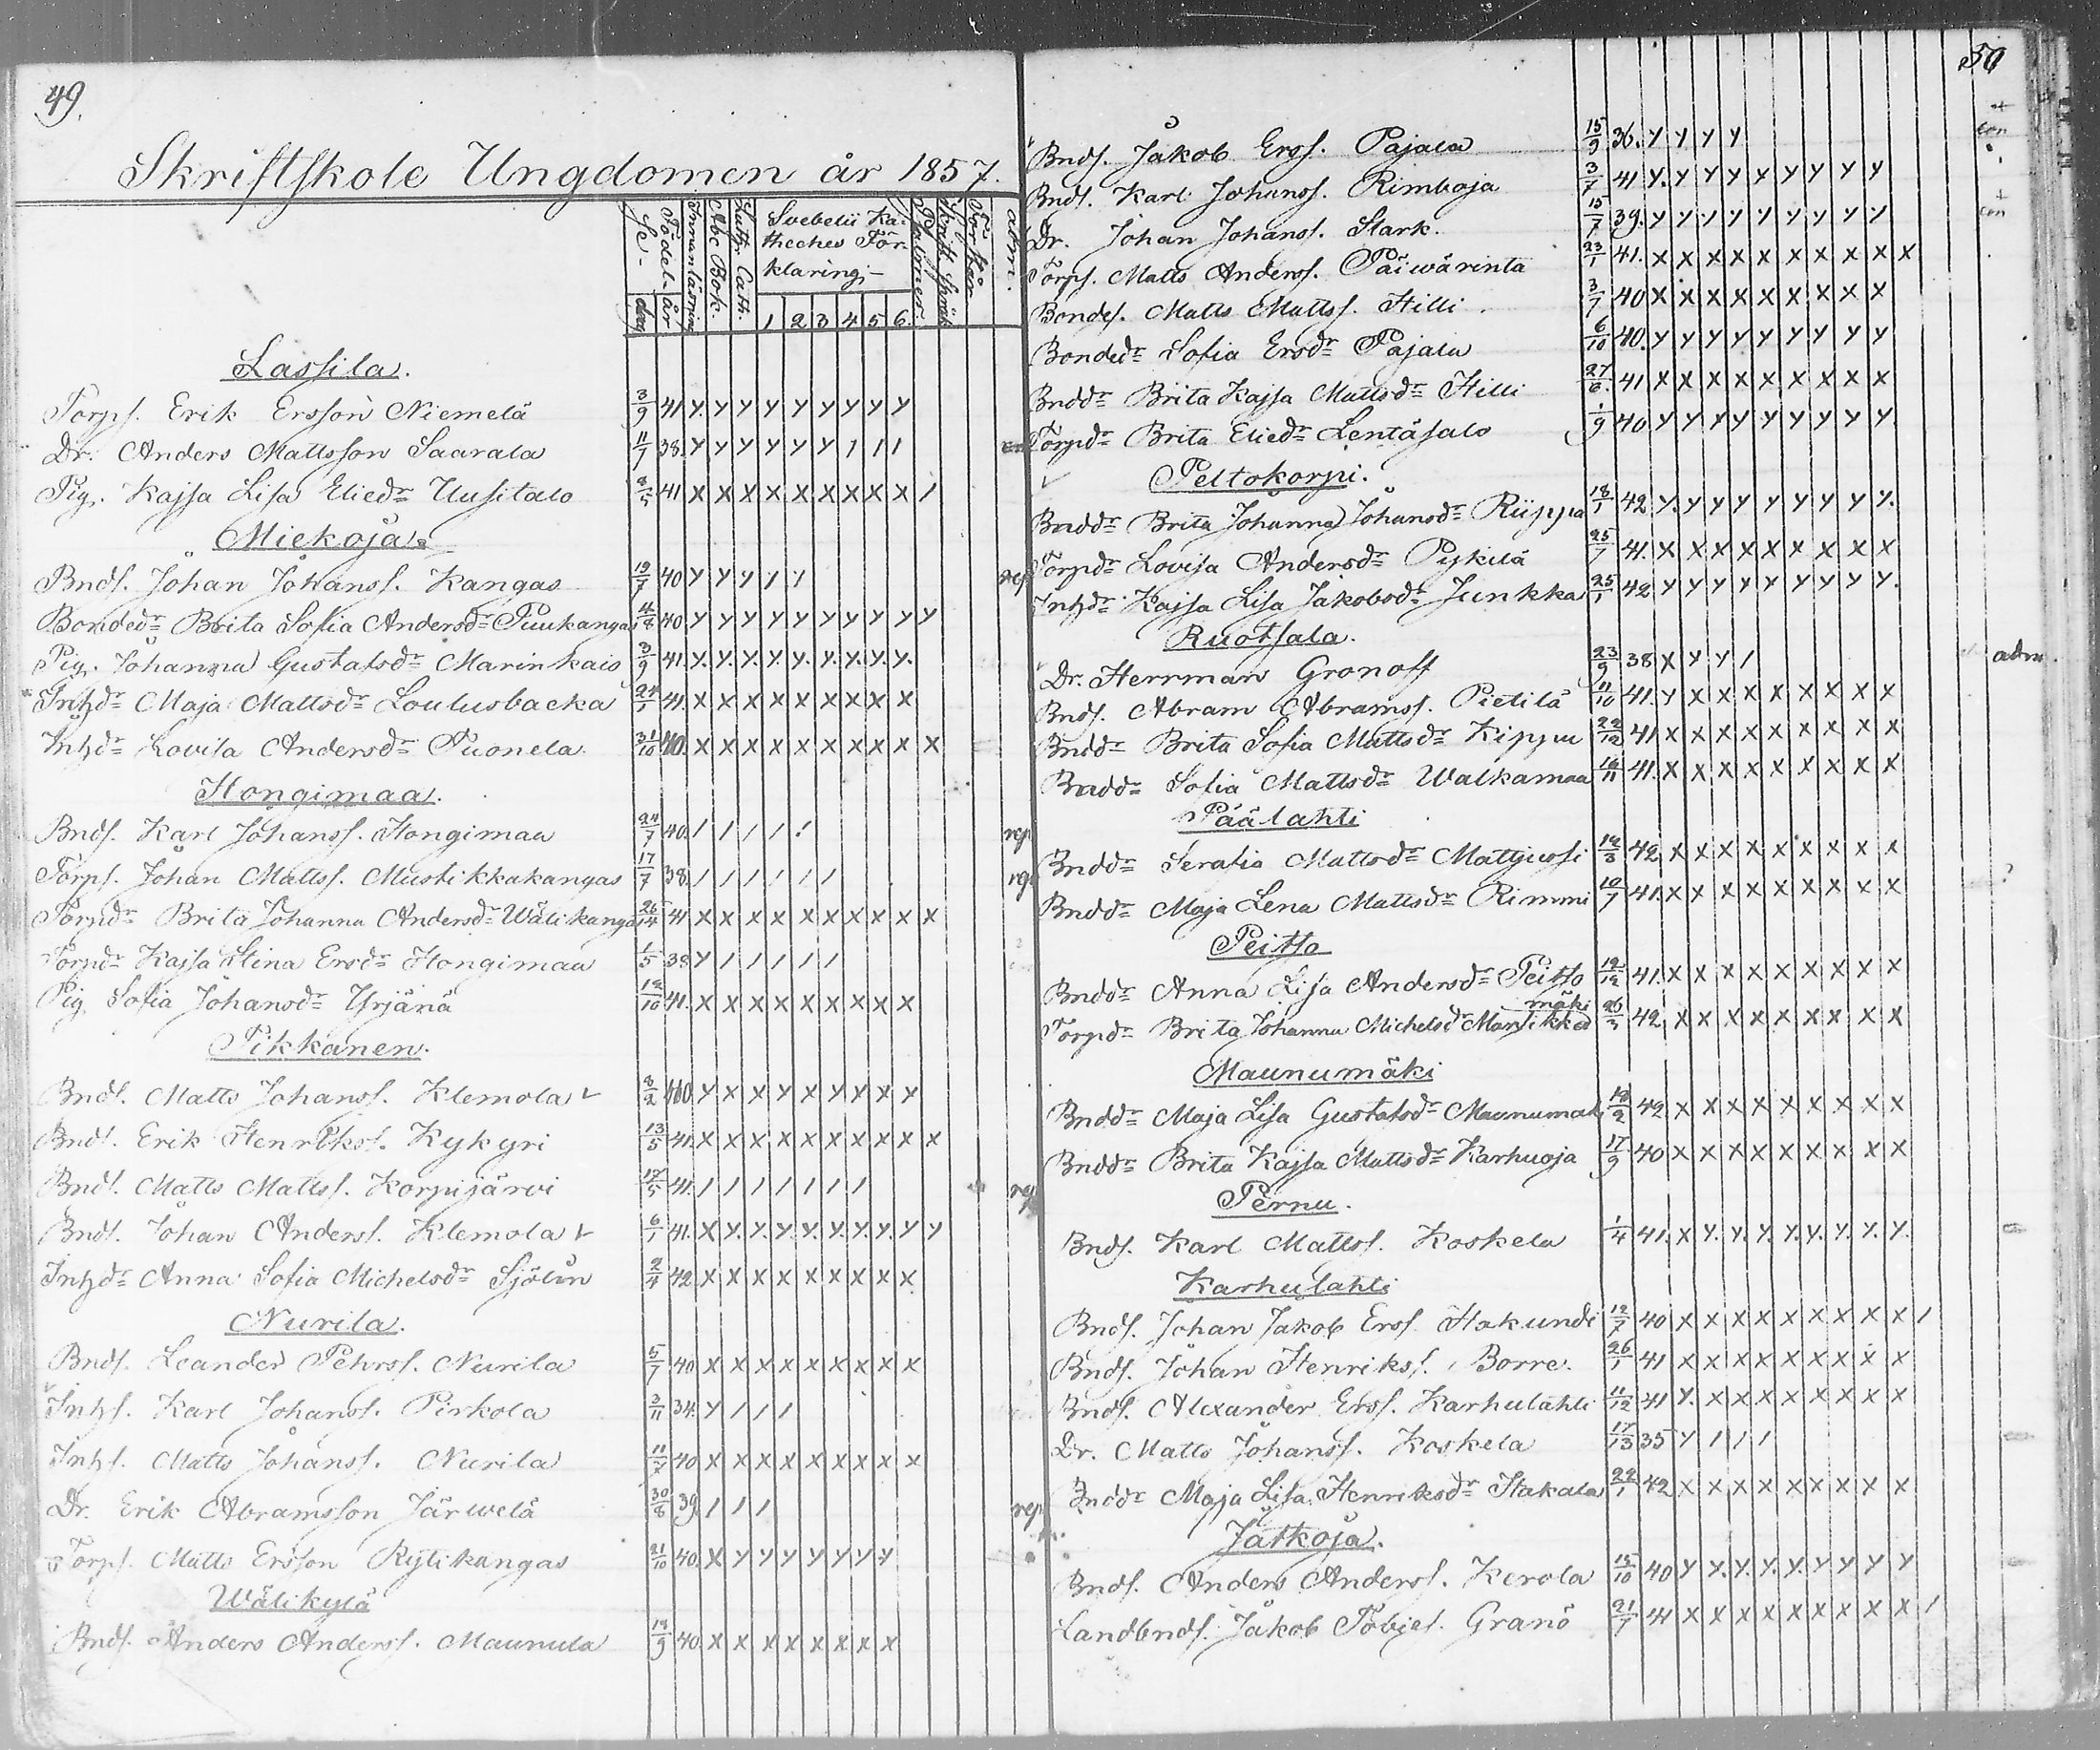 49.
Skriftskole Ungdomen år 1857.
Födel- Se- dag år Innanläsning Abc Bok. Luth. Cath. Svebelii Ka- theches För- klaring.- 1 2 3 4 5 6 Psalmer. Skrift Språk Förstår adm.
Lassila.
Torps. Erik Ersson Niemelä 3/9 41 y. y y y y y y y y
Dr. Anders Mattsson Saarala 11/7 38. y y y y y y 1 1 1
Pig. Kajsa Lisa Eliedr Uusitalo 41 x x x x x x x x x /
Miekoja.
Bnds. Johan Johanss. Kangas 19/7 40 y y y / y rep
Bondedr Brita Sofia Andersdr Puukangas 4/8 40 y y y y y y y y y y
Pig. Johanna Gustafsdr Marinkais 3/9 41. y. y. y. y. y. y. y. y. y.
Inhdr Maja Mattsdr Loulusbacka 24/1 41. x x x x x x x x x
Inhdr Lovisa Andersdr Puonela 31/10 40. x x x x x x x x x x
Hongimaa.
Bnds. Karl Johanss. Hongimaa 24/7 40. / / / / / rep
Torps. Johan Matts. Mustikkakangas 17/7 38. / / / / / /
Torpdr Brita Johanna Andersdr Wälikangas 41 x x x x x x x x x x
Torpdr Kajsa Stina Ersdr Hongimaa 1/5 38 y / / / / /
Pig. Sofia Johansdr Yrjänä 12/10 41. x x x x x x x x x
Pikkanen.
Bnds. Matts Johanss. Klemola 3/2 40. y x x y x y y x y
Bnds. Erik Henrikss. Kykyri 13/5 41. x x x x x x x x x x
Bnds. Matts Matts. Korpijärvi 17/5 41. / / / / / / / rep
Bnds. Johan Anders. Klemola 6/1 41. x y. y. y. y. y. y. y. y y
Inhdr Anna Sofia Michelsdr Sjölin 2/4 42 x x x x x x x x x
Nurila.
Bnds. Leander Pehrs. Nurila 5/7 40 x x x x x x x x x
Inhs. Karl Johanss. Pirkola 3/11 34. y / / /
Inhs. Matts Johanss. Nurila 40 x x x x x x x x x
Dr. Erik Abramsson Järwelä 30/8 39 / / / rep
Torps. Matts Ersson Rytikangas 21/10 40. x y y y y y y y
Wälikylä
Bnds. Anders Anders. Maunula 19/9 40 x x x x x x x x
50
Bnds. Jakob Ers. Pajala 15/9 36. y y y y
Bnds. Karl Johanss. Rimboja 3/7 41 y. y y y y y y y y
Dr. Johan Johanss. Stark. 15/7 39. y y y y y y y y y
Torps. Matts Anders. Päiwärinta 23/1 41. x x x x x x x x x x
Bondes. Matts Matts. Hilli 3/7 40 x x x x x x x x x
Bondedr Sofia Ersdr Pajala 6/10 40. y y y y y y y y y
Bnddr Brita Kajsa Mattsdr Hilli 27/6. 41 x x x x x x x x x
Torpdr Brita Eliedr Lentäsalo 1/9 40 y y y y y y y y y
Peltokorpi.
Bnddr Brita Johanna Johansdr Riippa 18/1 42 y. y y y y y y y y.
Torpdr Lovisa Andersdr Pykilä 25/7 41. x x x x x x x x x
Inhdr Kajsa Lisa Jakobsdr Junkka 25/1 42 y y y y y y y y y.
Ruotsala.
Dr. Herrman Gronoff 23/9 38 x y y / adm.
Bnds. Abram Abramss. Pietilä 11/10 41. y x x x x x x x x
Bnddr Brita Sofia Mattsdr Kippu 22/12 41 x x x x x x x x x
Bnddr Sofia Mattsdr Walkamaa 41. x x x x x x x x x
Päälahti
Bnddr Serafia Mattsdr Mattjussi 12/3 42 x x x x x x x x x
Bnddr Maja Lena Mattsdr Rimmi 10/7 41. x x x x x x x x x
Peitso
Bnddr Anna Lisa Andersdr Peitso 12/12 41. x x x x x x x x x
mäki
Torpdr Brita Johanna Michelsdr Mansikka 42. x x x x x x x x x
Maunumäki
Bnddr Maja Lisa Gustafsdr Maunumäki 42 x x x x x x x x x
Bnddr Brita Kajsa Mattsdr Karhuoja 17/9 40 x x x x x x x x x
Pernu.
Bnds. Karl Matts. Koskela 1/4 41. x y. y. y. y. y. y. y. y.
Karhulahti
Bnds. Johan Jakob Ers. Hakundi 12/7 40 x x x x x x x x x /
Bnds. Johan Henrikss. Borre. 26/1 41 x x x x x x x x x
Bnds. Alexander Ers. Karhulahti 11/12 41 y. x x x x x x x x
Dr. Matts Johanss. Koskela 35 y / / /
Bnddr Maja Lisa Henriksdr Hakala 22/1 42 x x x x x x x x x
Jätkoja.
Bnds. Anders Anders. Kerola 15/10 40 y y. y. y. y. y y y y
Landbnds. Jakob Tobies. Granö 21/7 41 x x x x x x x x x /